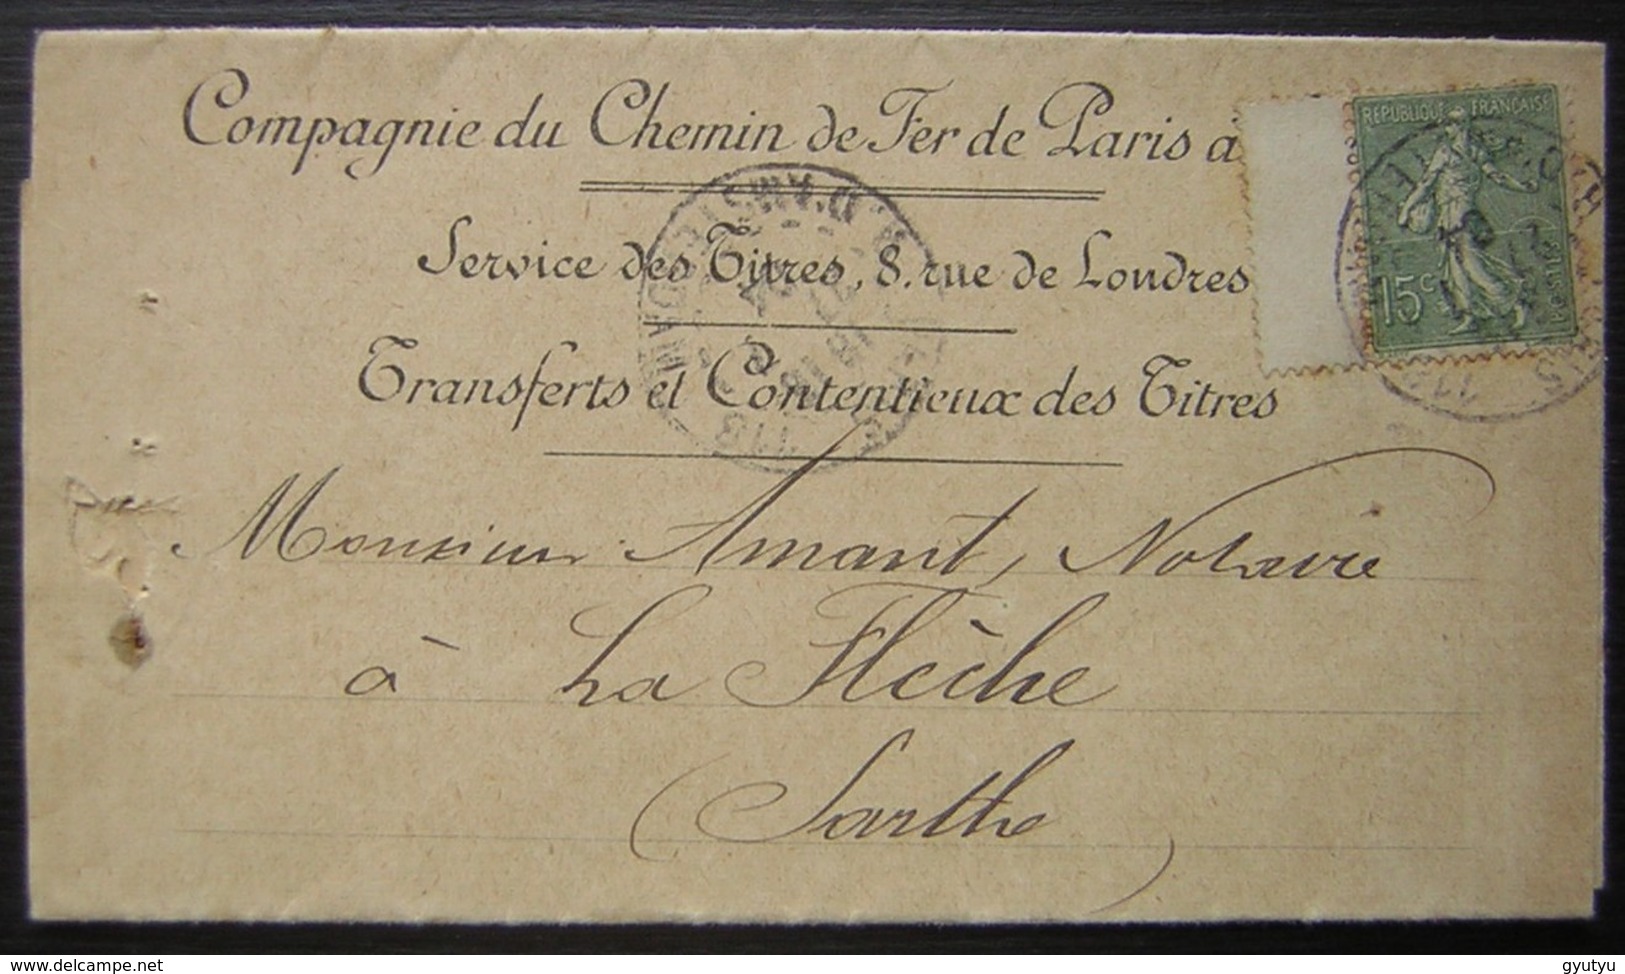 Compagnie du Chemin de Fer de Paris à
Service des Titres, 8, rue de Londres
Transferts et Contentieux des Titres
RÉPUBLIQUE FRANÇAISE
15c
Monsieur Amant, Notaire
à La Flèche
(Sarthe)
www.delcampe.net
gyutyu